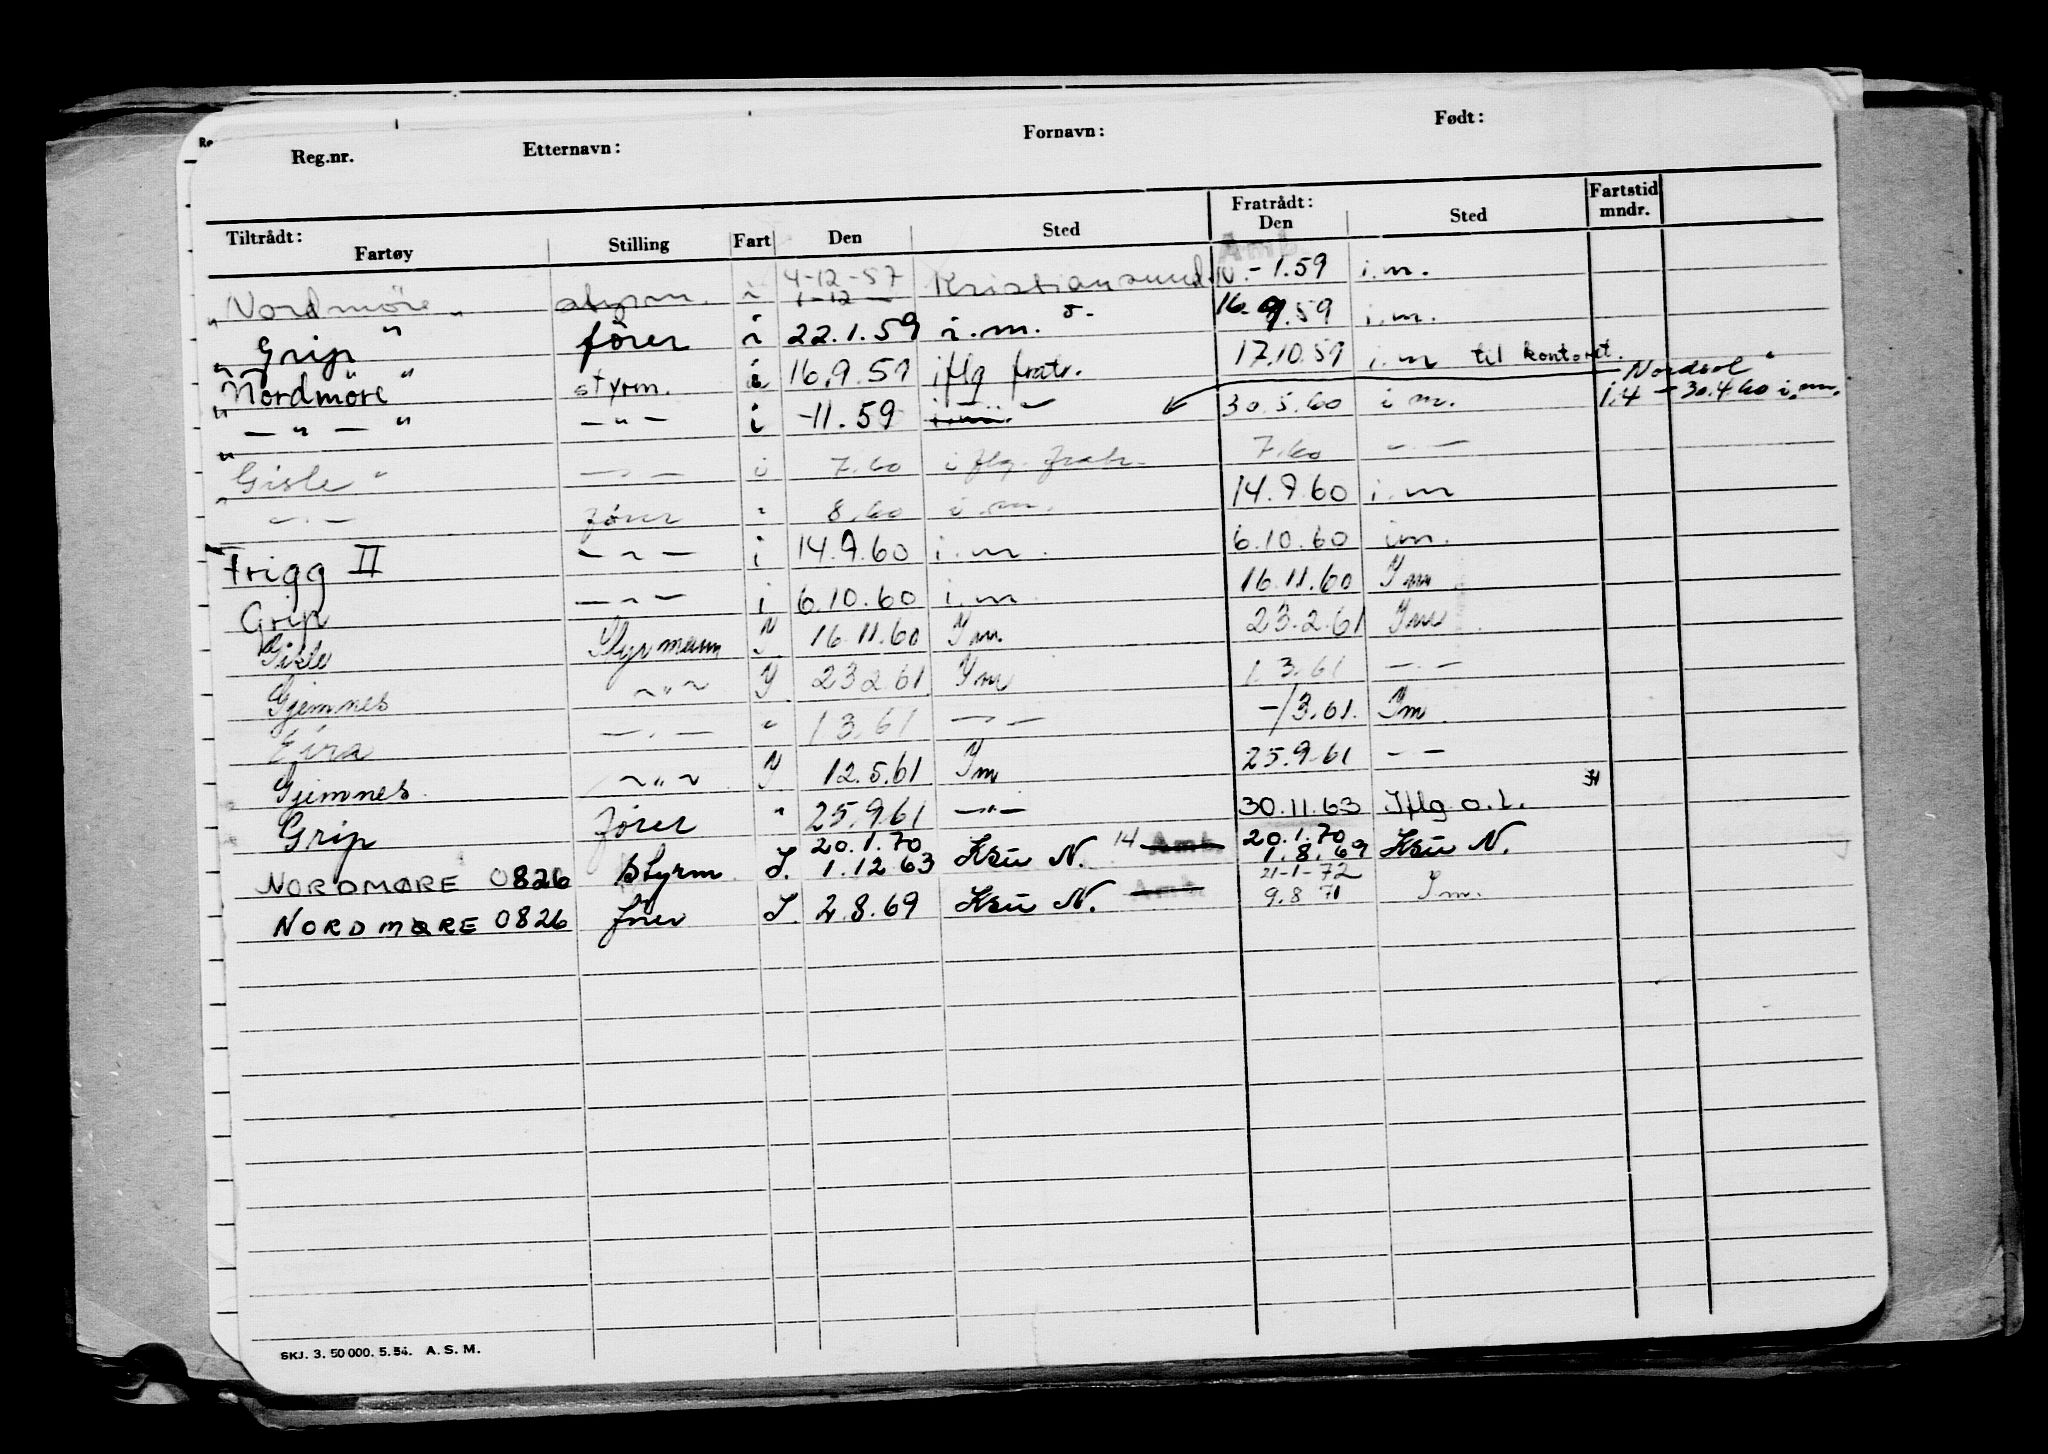 Reg.nr. Etternavn: Fornavn: Født:
Tiltrådt: Fratrådt: Fartstid mndr.
Fartøy Stilling Fart Den Sted Den Sted
Amb.
4-12-57
"Nordmöre" styrm. i 1-12- Kristiansund. -1.59 i.m.
"Grip" förer i 22.1.59 i.m. 16.9.59 i.m.
"Nordmöre" styrm. i 16.9.59 iflg fratr. 17.10.59 i.m til kontoret.
"Nordsol"
"—"—" —"— i -11.59 30.5.60 i m. 1.4 - 30.4 60 i.m.
"Gisle" —"— i 7.60 iflg. fratr. 7.60 —"—
"—"— fører " 8.60 i.m. 14.9.60 i.m
Frigg II —"— i 14.9.60 i.m. 6.10.60 im.
Grip —"— i 6.10.60 i.m. 16.11.60 Im
Gisle Styrmann I 16.11.60 Im. 23.2.61 Im
Gjemnes —"— I 23.2.61 Im 1.3.61 —"—
Eira —"— " 1.3.61 —"— -/3.61. Im
Gjemnes. —"— I 12.5.61 Im 25.9.61 —"—
Grip fører " 25.9.61 —"— 30.11.63 Iflg o.l.
20.1.70 14 Amb. 20.1.70
NORDMØRE 0826 Styrm I. 1.12 63 Ksu N. 1.8.69 Ksu N.
21-1-72
NORDMØRE 0826 fører I. 2.8.69 Ksu N. Amb. 9.8 71 Im.
SKJ. 3. 50 000. 5.54. A. S. M.